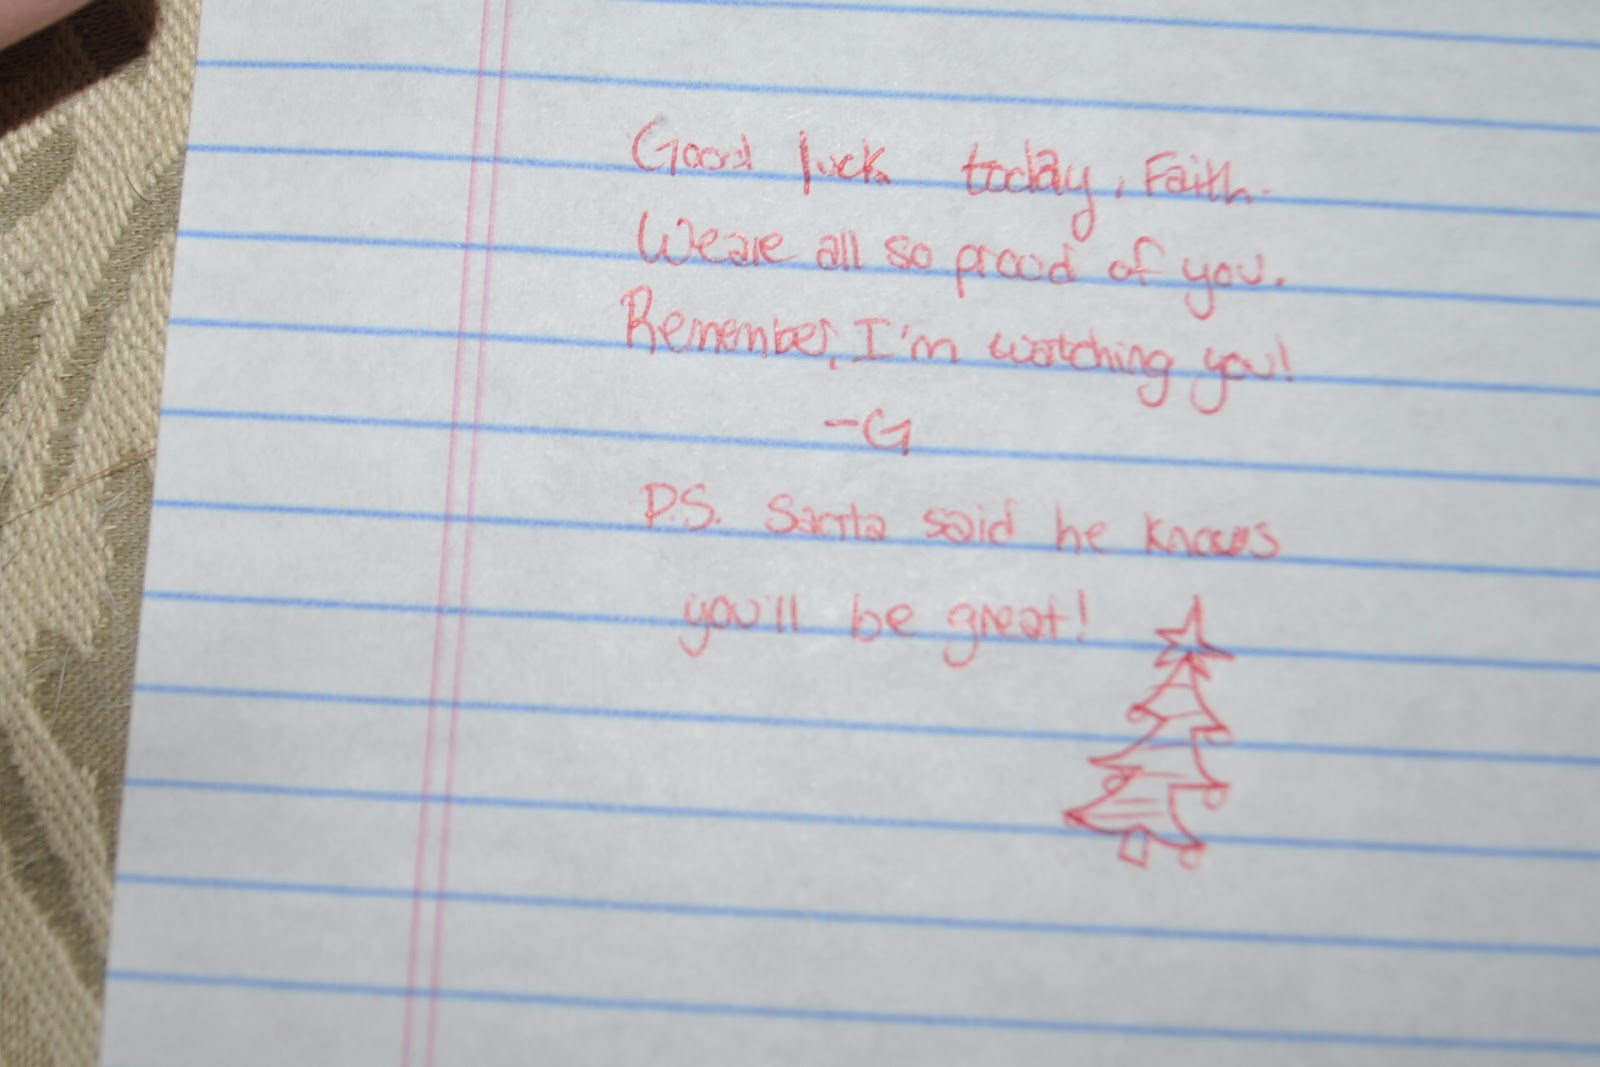 Good luck today, Faith.
We are all so proud of you.
Remember, I'm watching you!
-G
P.S. Santa said he knows
you'll be great!